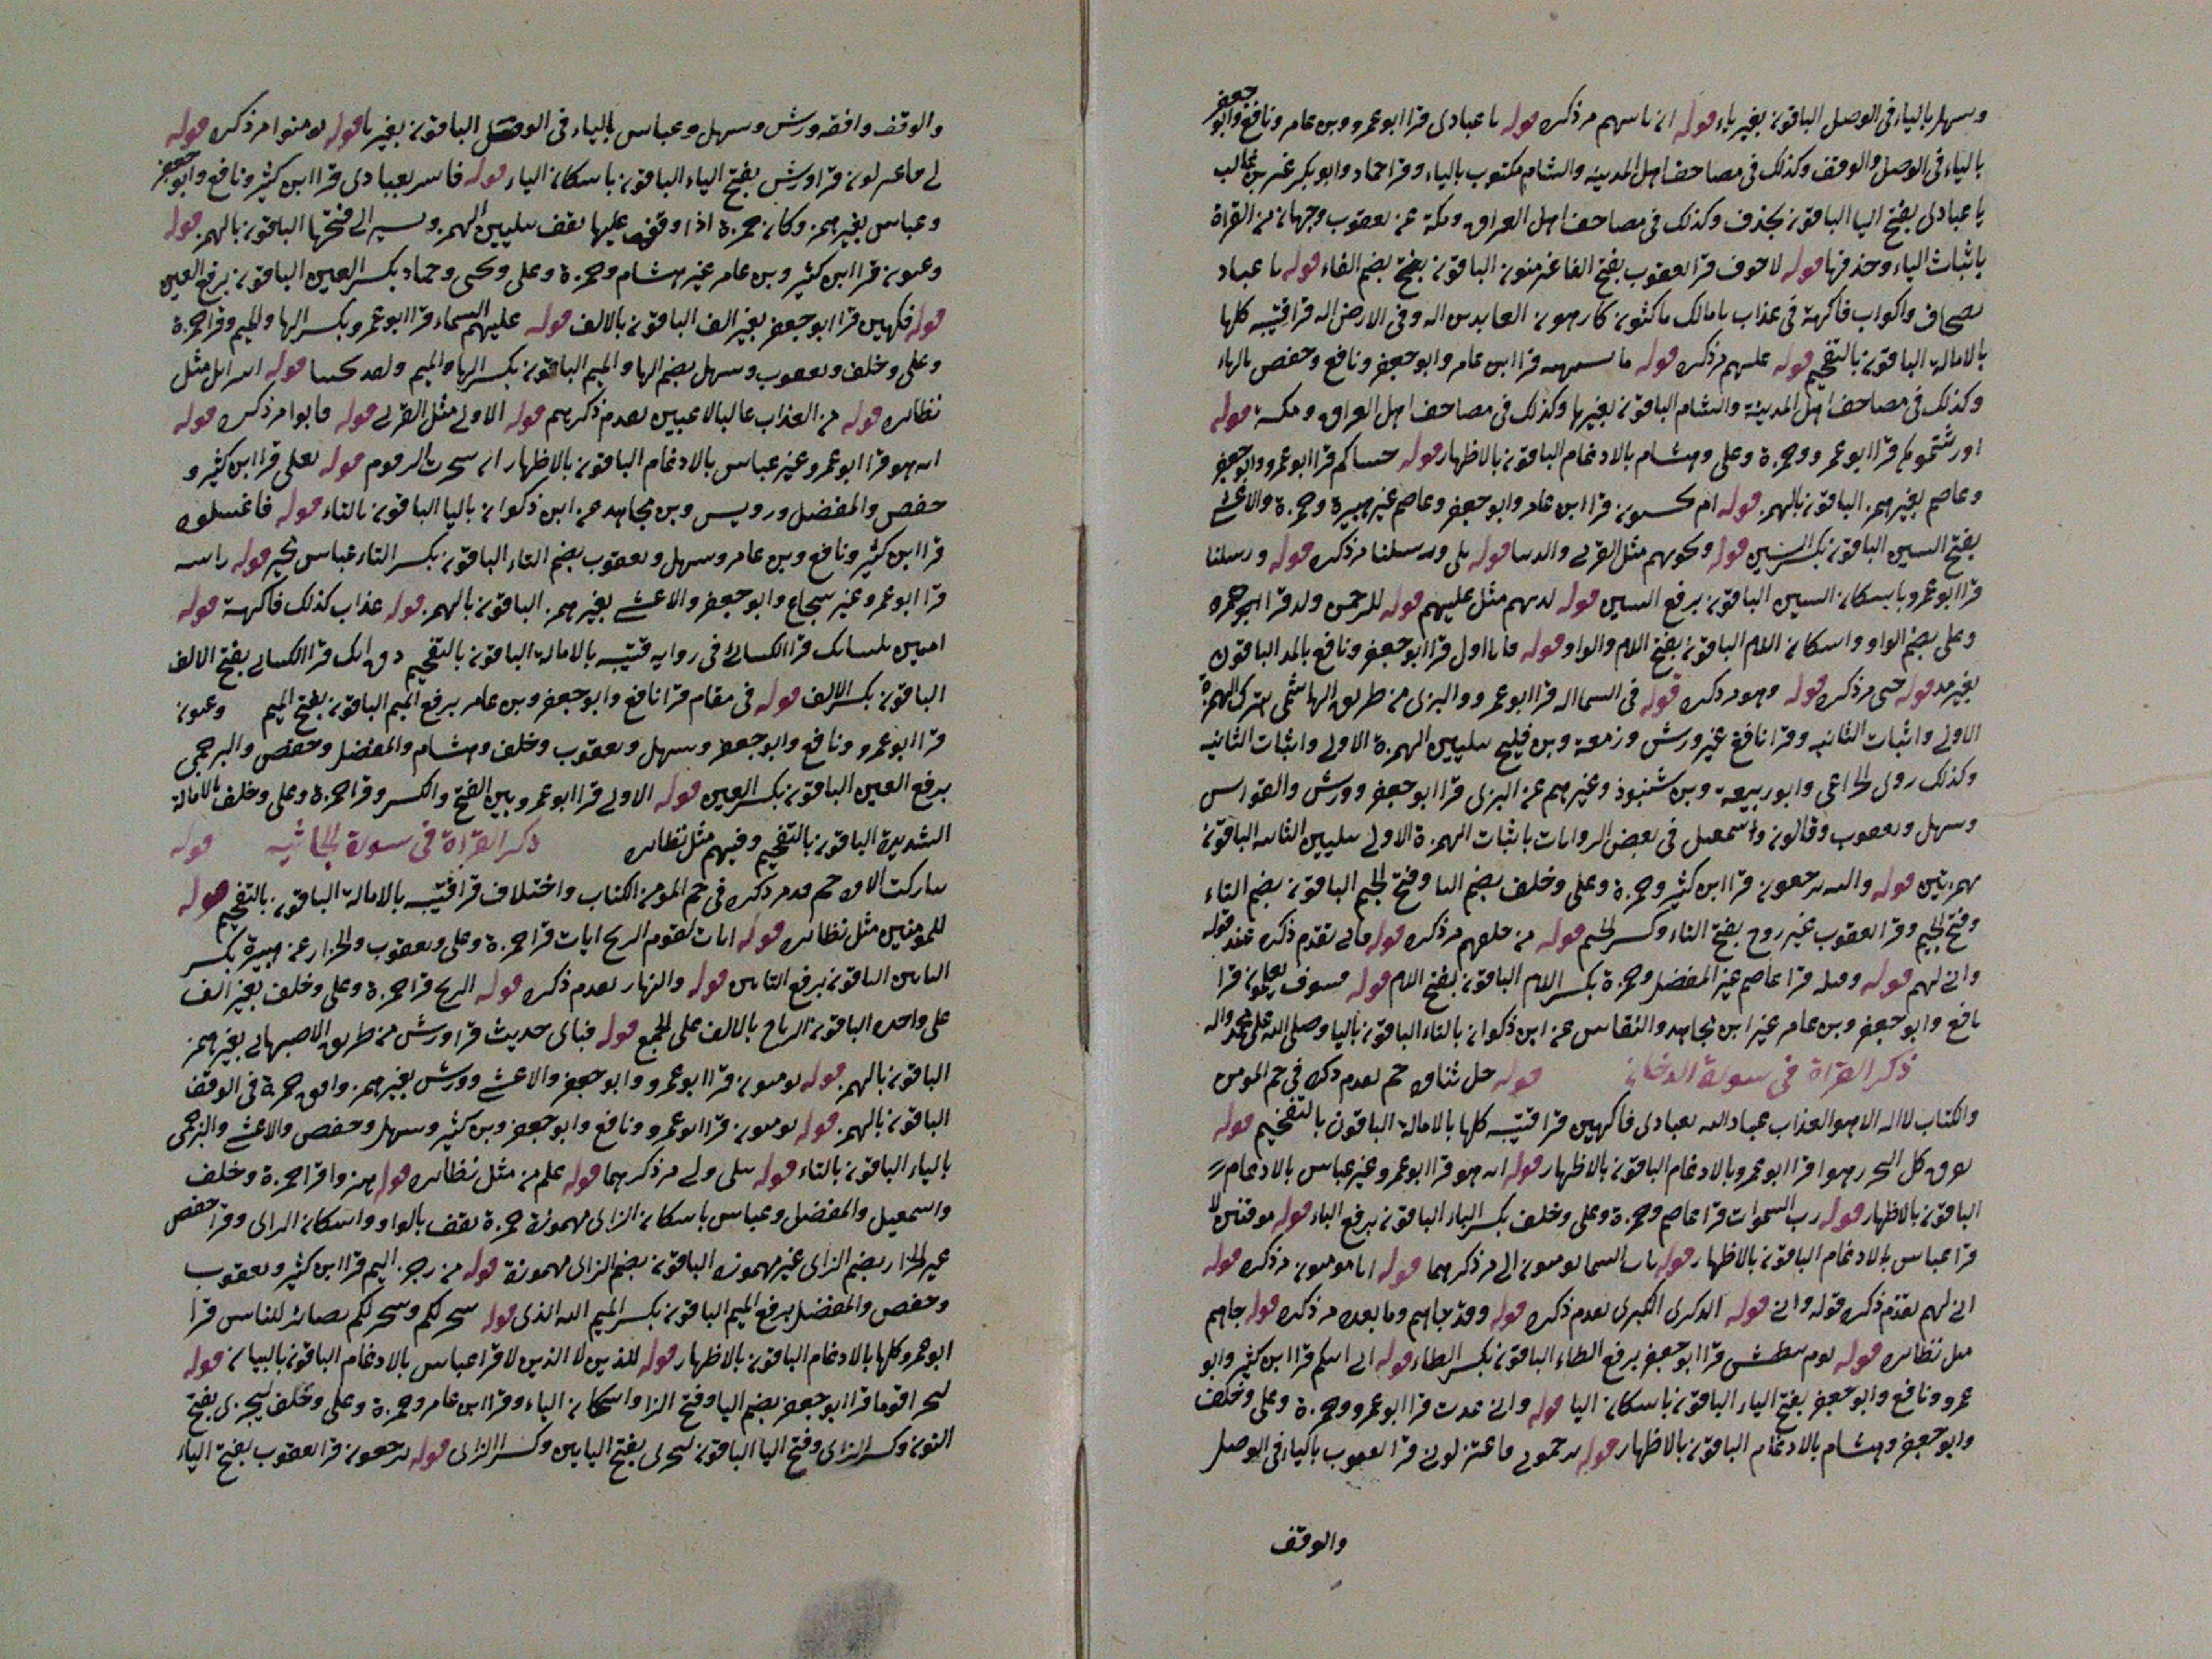 وسهل بالياء في الوصل الباقون بغير ياء قوله ان ناسهم مر ذكره قوله يا عبادي قرا ابو عمرو وبن عامر ونافع وابو جعفر
بالياء في الوصل والوقف وكذلك في مصاحف اهل المدينه والشام مكتوب بالياء وقرا حماد وابو بكر غير بن غالب
يا عبادي بفتح اليا الباقون بحذف وكذلك في مصاحف اهل العراق ومكة عن يعقوب وجهان من القراة
باثبات الياء وحذفها قوله لا خوف قرا يعقوب بفتح الفا غير منون الباقون بفتح بضم الفاء قوله يا عباد
بصحاف واكواب فاكهة في عذاب يا مالك ماكثون كارهون العابدين اله وفي الارض اله قرا قتيبه كلها
بالامالة الباقون بالتفخيم قوله عليهم مر ذكره قوله ما تشتهيه قرا ابن عامر وابو جعفر ونافع وحفص بالهاء
وكذلك في مصاحف اهل المدينة والشام الباقون بغيرها وكذلك في مصاحف اهل العراق ومكة قوله
اورثتموها قرا ابو عمرو وحمزة وعلي وهشام بالادغام الباقون بالاظهار قوله جيناكم قرا ابو عمرو وابو جعفر
وعاصم بغير همز الباقون بالهمز قوله ام يحسبون قرا ابن عامر وابو جعفر وعاصم غير هبيرة وحمزة والاعشى
بفتح السين الباقون بكسر السين قوله ونجويهم مثل القربى والدنيا قوله بلى ورسلنا مر ذكره قوله ورسلنا
قرا ابو عمرو باسكان السين الباقون برفع السين قوله لديهم مثل عليهم قوله للرحمن ولد قرا حمزة
وعلي بضم الواو واسكان اللام الباقون بفتح اللام والواو قوله فانا اول قرا ابو جعفر ونافع بالمد الباقون
بغير مد قوله حتى مر ذكره قوله وهو مر ذكره قوله في السما اله قرا ابو عمرو والبزي من طريق الهاشمي بترك الهمزة
الاولى واثبات الثانيه وقرا نافع غير ورش وزمعة وبن فليح بتليين الهمزة الاولى واثبات الثانيه
وكذلك روى الخزاعي وابو ربيعة وبن شنبوذ وغيرهم عن البزي قرا ابو جعفر وورش والقواس
وسهل ويعقوب وقالون واسمعيل في بعض الروايات باثبات الهمزة الاولى بتليين الثانيه الباقون
بهمزتين قوله واليه يرجعون قرا ابن كثير وحمزة وعلي وخلف بضم اليا وفتح الجيم الباقون بضم التاء
وفتح الجيم وقرا يعقوب غير روح بفتح التاء وكسر الجيم قوله من خلقهم مر ذكره قوله فاني تقدم ذكره عند قوله
واني لهم قوله وقيله قرا عاصم غير المفضل وحمزة بكسر اللام الباقون بفتح اللام قوله فسوف يعلمون قرا
نافع وابو جعفر وبن عامر غير ابن مجاهد والنقاس عن ابن ذكوان بالتاء الباقون باليا وصلى الله على محمد واله
ذكر القراة في سورة الدخان قوله جل ثناؤه حم تقدم ذكره في حم المومن
والكتاب لا اله الا هو العذاب عباد الله بعبادي فاكهين قرا قتيبه كلها بالامالة الباقون بالتفخيم قوله
يفرق كل البحر رهوا قرا ابو عمرو بالادغام الباقون بالاظهار قوله انه هو قرا ابو عمرو غير عباس بالادغام
الباقون بالاظهار قوله رب السموات قرا عاصم وحمزة وعلي وخلف بكسر الباء الباقون برفع الباء قوله موقنين لا
قرا عباس بالادغام الباقون بالاظهار قوله تاتي السما يومنون الى مر ذكرهما قوله انا مومنون مر ذكره قوله
اني لهم تقدم ذكره قوله واني قوله الذكرى الكبرى تقدم ذكره قوله وقد جاهم وما بعده مر ذكره قوله جاهم
مثل نظائره قوله يوم نبطش قرا ابو جعفر برفع الطاء الباقون بكسر الطاء قوله اني اتيكم قرا ابن كثير وابو
عمرو ونافع وابو جعفر بفتح الياء الباقون باسكان اليا قوله واني عذت قرا ابو عمرو وحمزة وعلي وخلف
وابو جعفر وهشام بالادغام الباقون بالاظهار قوله ترجموني فاعتزلون قرا يعقوب بالياء في الوصل
والوقف
والوقف وافقه ورش وسهل وعباس بالياء في الوصل الباقون بغير يا قوله تومنوا مر ذكره قوله
لي فاعتزلون قرا ورش بفتح الياء الباقون باسكان الياء قوله فاسر بعبادي قرا ابن كثير ونافع وابو جعفر
وعباس بغير همز وكان حمزة اذا وقف عليها يقف بتليين الهمز ويسير الى فتحها الباقون بالهمز قوله
وعيون قرا ابن كثير وبن عامر غير هشام وحمزة وعلي ويحيى وحماد بكسر العين الباقون برفع العين
قوله فكهين قرا ابو جعفر بغير الف الباقون بالالف قوله عليهم السماء قرا ابو عمرو بكسر الها والميم وقرا حمزة
وعلي وخلف ويعقوب وسهل بضم الها والميم الباقون بكسر الها والميم ولقد نجينا قوله اسرائيل مثل
نظائره قوله من العذاب عاليا لاعبين تقدم ذكرهم قوله الاولى مثل القربى قوله فاتوا مر ذكره قوله
انه هو قرا ابو عمرو غير عباس بالادغام الباقون بالاظهار ان شجرت الزقوم قوله يغلي قرا ابن كثير و
حفص والمفضل ورويس وبن مجاهد عن ابن ذكوان باليا الباقون بالتاء قوله فاعتلوه
قرا ابن كثير ونافع وبن عامر وسهل ويعقوب بضم التاء الباقون بكسر التاء عباس مخير قوله راسه
قرا ابو عمرو غير شجاع وابو جعفر والاعشى بغير همز الباقون بالهمز قوله عذاب كذلك فاكهة قوله
امنين بلسانك قرا الكسائي في رواية قتيبه بالامالة الباقون بالتفخيم ذق انك قرا الكسائي بفتح الالف
الباقون بكسر الالف قوله في مقام قرا نافع وابو جعفر وبن عامر برفع الميم الباقون بفتح الميم وعيون
قرا ابو عمرو ونافع وابو جعفر وسهل ويعقوب وخلف وهشام والمفضل وحفص والبرجمي
برفع العين الباقون بكسر العين قوله الاولى قرا ابو عمرو بين الفتح والكسر وقرا حمزة وعلي وخلف بالامالة
الشديدة الباقون بالتفخيم وفيهم مثل نظائره ذكر القراة في سورة الجاثيه قوله
تباركت الاؤه حم قد مر ذكره في حم المومن الكتاب واختلاف قرا قتيبه بالامالة الباقون بالتفخيم قوله
للمومنين مثل نظائره قوله ايات لقوم الريح ايات قرا حمزة وعلي ويعقوب والخزاز عن هبيرة بكسر
التاين الباقون برفع التاين قوله والنهار تقدم ذكره قوله الريح قرا حمزة وعلي وخلف بغير الف
على واحده الباقون الرياح بالالف على الجمع قوله فباي حديث قرا ورش من طريق الاصبهاني بغير همز
الباقون بالهمز قوله يومنون قرا ابو عمرو وابو جعفر والاعشى وورش بغير همز وافق حمزة في الوقف
الباقون بالهمز قوله يومنون قرا ابو عمرو ونافع وابو جعفر وبن كثير وسهل وحفص والاعشى والبرجمي
بالياء الباقون بالتاء قوله تتلى ولي مر ذكرهما قوله علم من مثل نظائره قوله هزوا قرا حمزة وخلف
واسمعيل والمفضل وعباس باسكان الزاي مهموزة حمزة يقف بالواو واسكان الزاي وقرا حفص
غير الخزاز بضم الزاي غير مهموزه الباقون بضم الزاي مهموزة قوله من رجز اليم قرا ابن كثير ويعقوب
وحفص والمفضل برفع الميم الباقون بكسر الميم الله الذي قوله سخر لكم وسخر لكم بصائر للناس قرا
ابو عمرو كلها بالادغام الباقون بالاظهار قوله للذين لا الذين لا قرا عباس بالادغام الباقون بالبيان قوله
ليجزي قوما قرا ابو جعفر بضم اليا وفتح الزا واسكان الياء وقرا ابن عامر وحمزة وعلي وخلف لنجزي بفتح
النون وكسر الزاي وفتح اليا الباقون ليجزي بفتح اليايين وكسر الزاي قوله ترجعون قرا يعقوب بفتح الياء